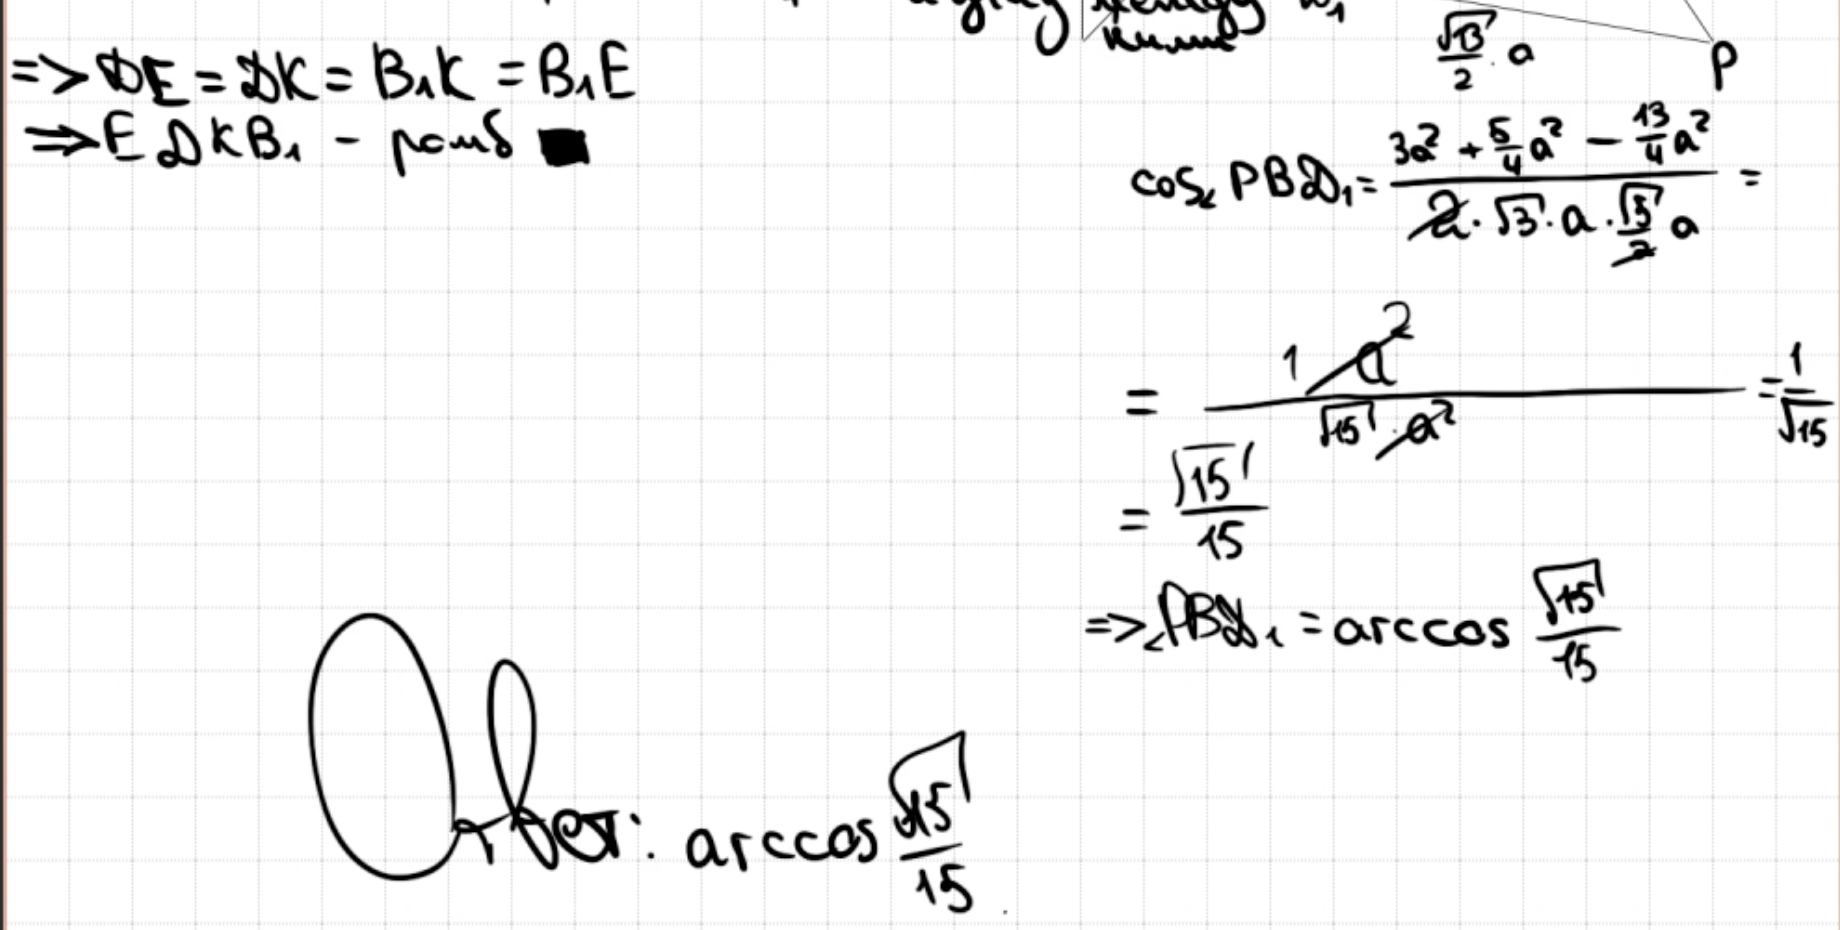 => DE = DK = B₁K = B₁E
=> EDKB₁ - ромб ■
между
ними
√13/2 · a
P
cos∠PBD₁ = (3a² + 5/4 a² − 13/4 a²)/(2 · √3 · a · √5/2 a) =
= 1 a²/(√15 · a²) = 1/√15
= √15/15
=> ∠PBD₁ = arccos √15/15
Ответ: arccos √15/15